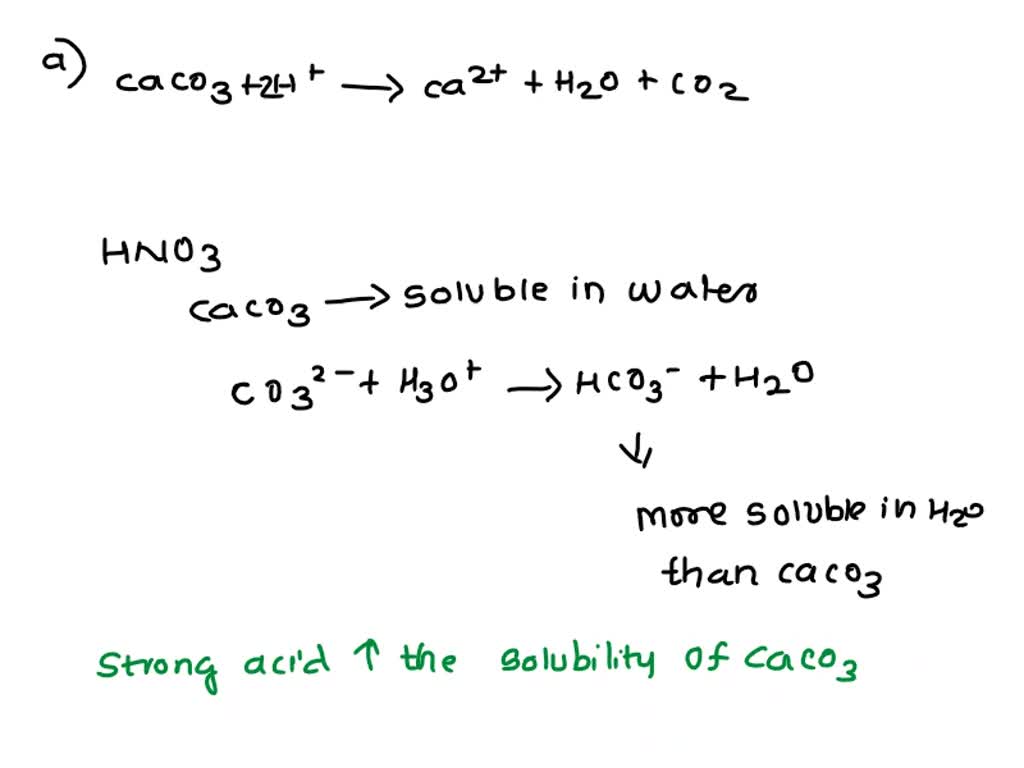 a) caco3 +2H+ → ca2+ + H2O + CO2
HNO3
caco3 → soluble in water
CO3 2- + H3O+ → HCO3- + H2O
↓
more soluble in H2O
than caco3
Strong acid ↑ the solubility of caco3